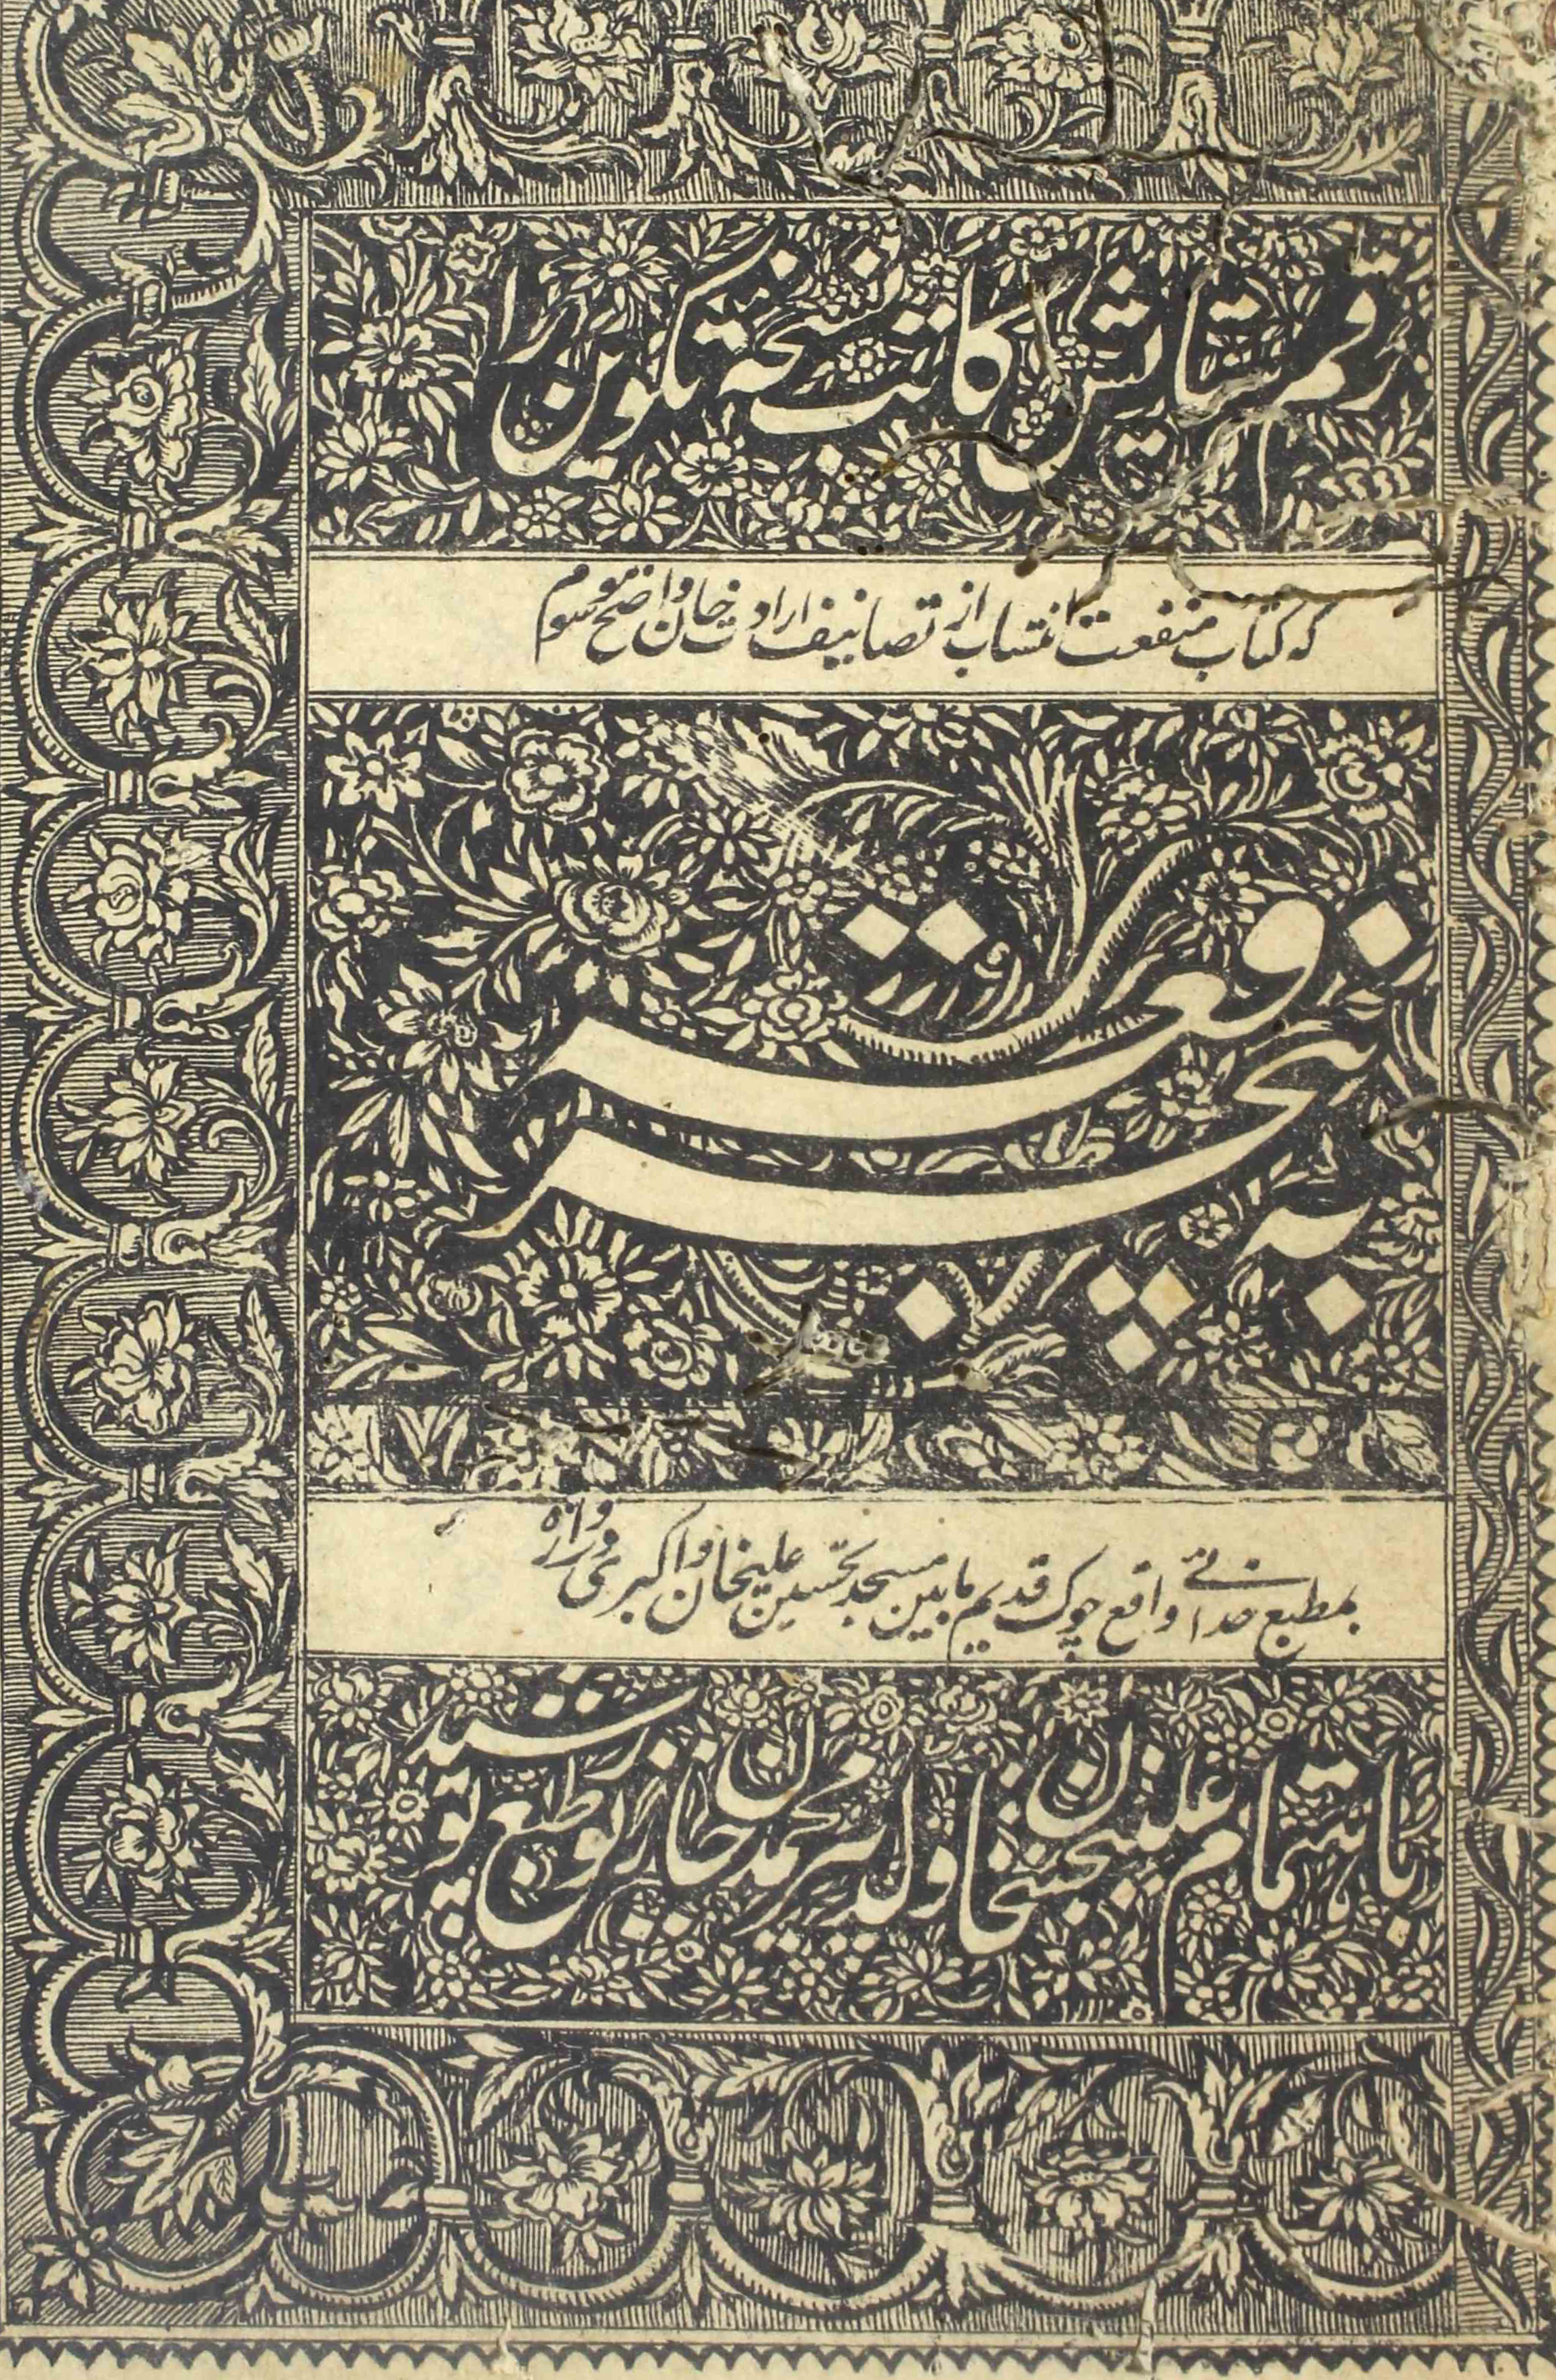 رقم ستایش کاتب نسخهٔ تکوین را
که کتاب منفعت انتساب از تصانیف ارادت خان واضح موسوم
به پنج رقعه
بمطبع خدائی واقع چوک قدیم مابین مسجد تحسین علیخان و اکبری دروازه
باهتمام علی بخش خان ول میر محمد خان زیور طبع پوشید